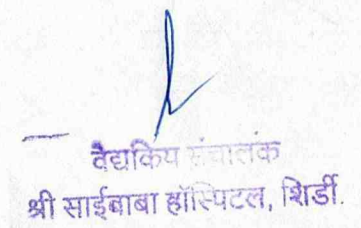 वैद्यकिय संचालंक
श्री साईबाबा हॉस्पिटल, शिर्डी.